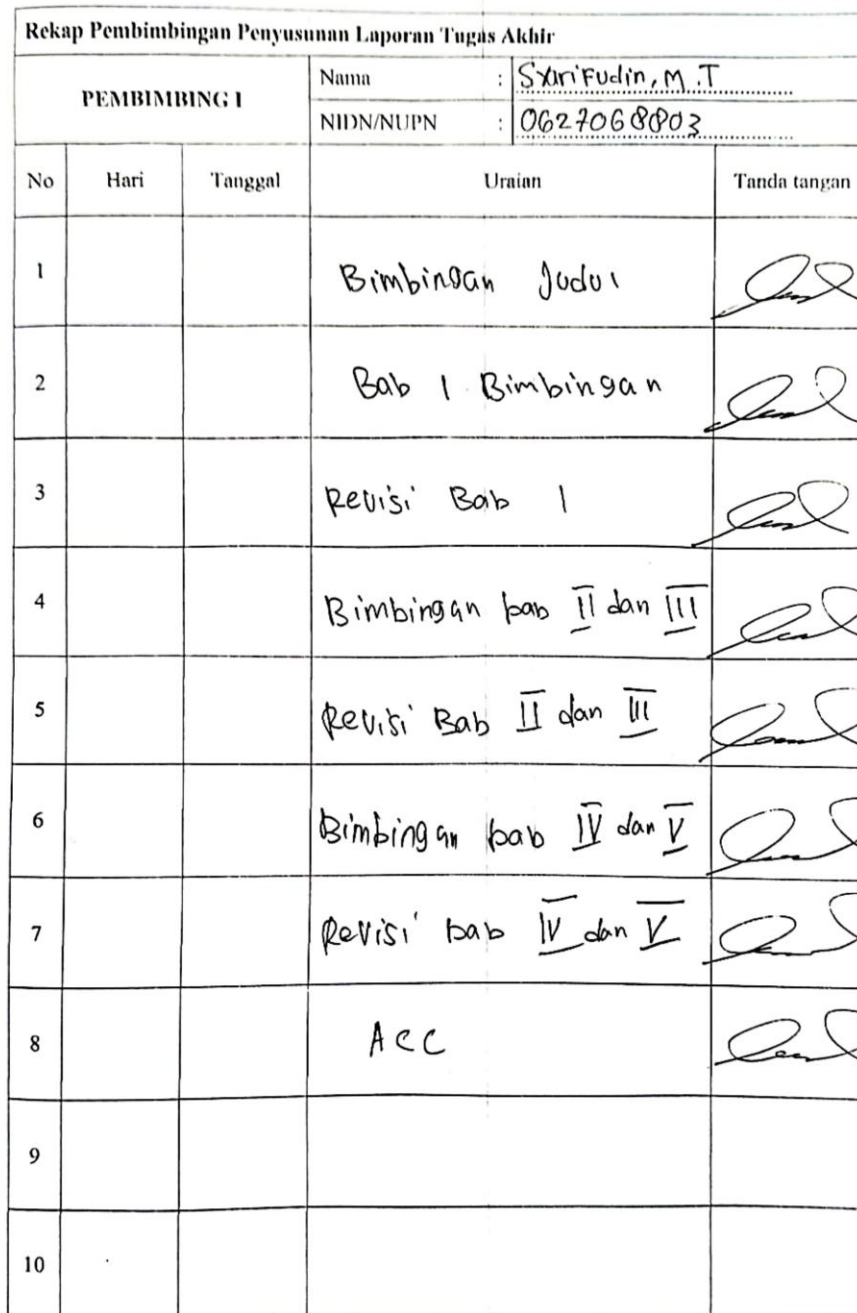 Rekap Pembimbingan Penyusunan Laporan Tugas Akhir
PEMBIMBING I
Nama : Syarifudin, M.T
NIDN/NUPN : 0627068803
No Hari Tanggal Uraian Tanda tangan
1 Bimbingan Judul
2 Bab 1 Bimbingan
3 Revisi Bab 1
4 Bimbingan bab II dan III
5 Revisi Bab II dan III
6 Bimbingan bab IV dan V
7 Revisi bab IV dan V
8 Acc
9
10